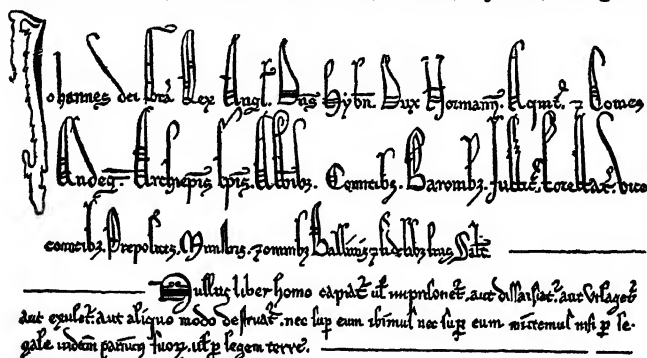 Johannes dei gra Rex Angl. Dns Hybn. Dux Normann. Aquit. ⁊ Comes
Andeg. Archiepis. Epis. Abbibz. Comitibz. Baronibz. Justic. Forestar. vice
comitibz. Prepositis. Ministris. ⁊ omnibz Ballivis ⁊ fidelibz suis Salt.
Nullus liber homo capiat' ul' imprisonet'. aut dissaisiat'. aut utlaget'
aut exulet'. aut aliquo modo destruat'. nec sup eum ibimus nec sup eum mittemus nisi p le-
gale judicium parium suorz. ul' p legem terre.